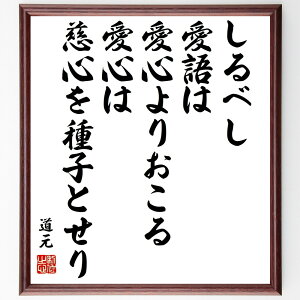 しるべし
愛語は
愛心よりおこる
愛心は
慈心を種子とせり
道元